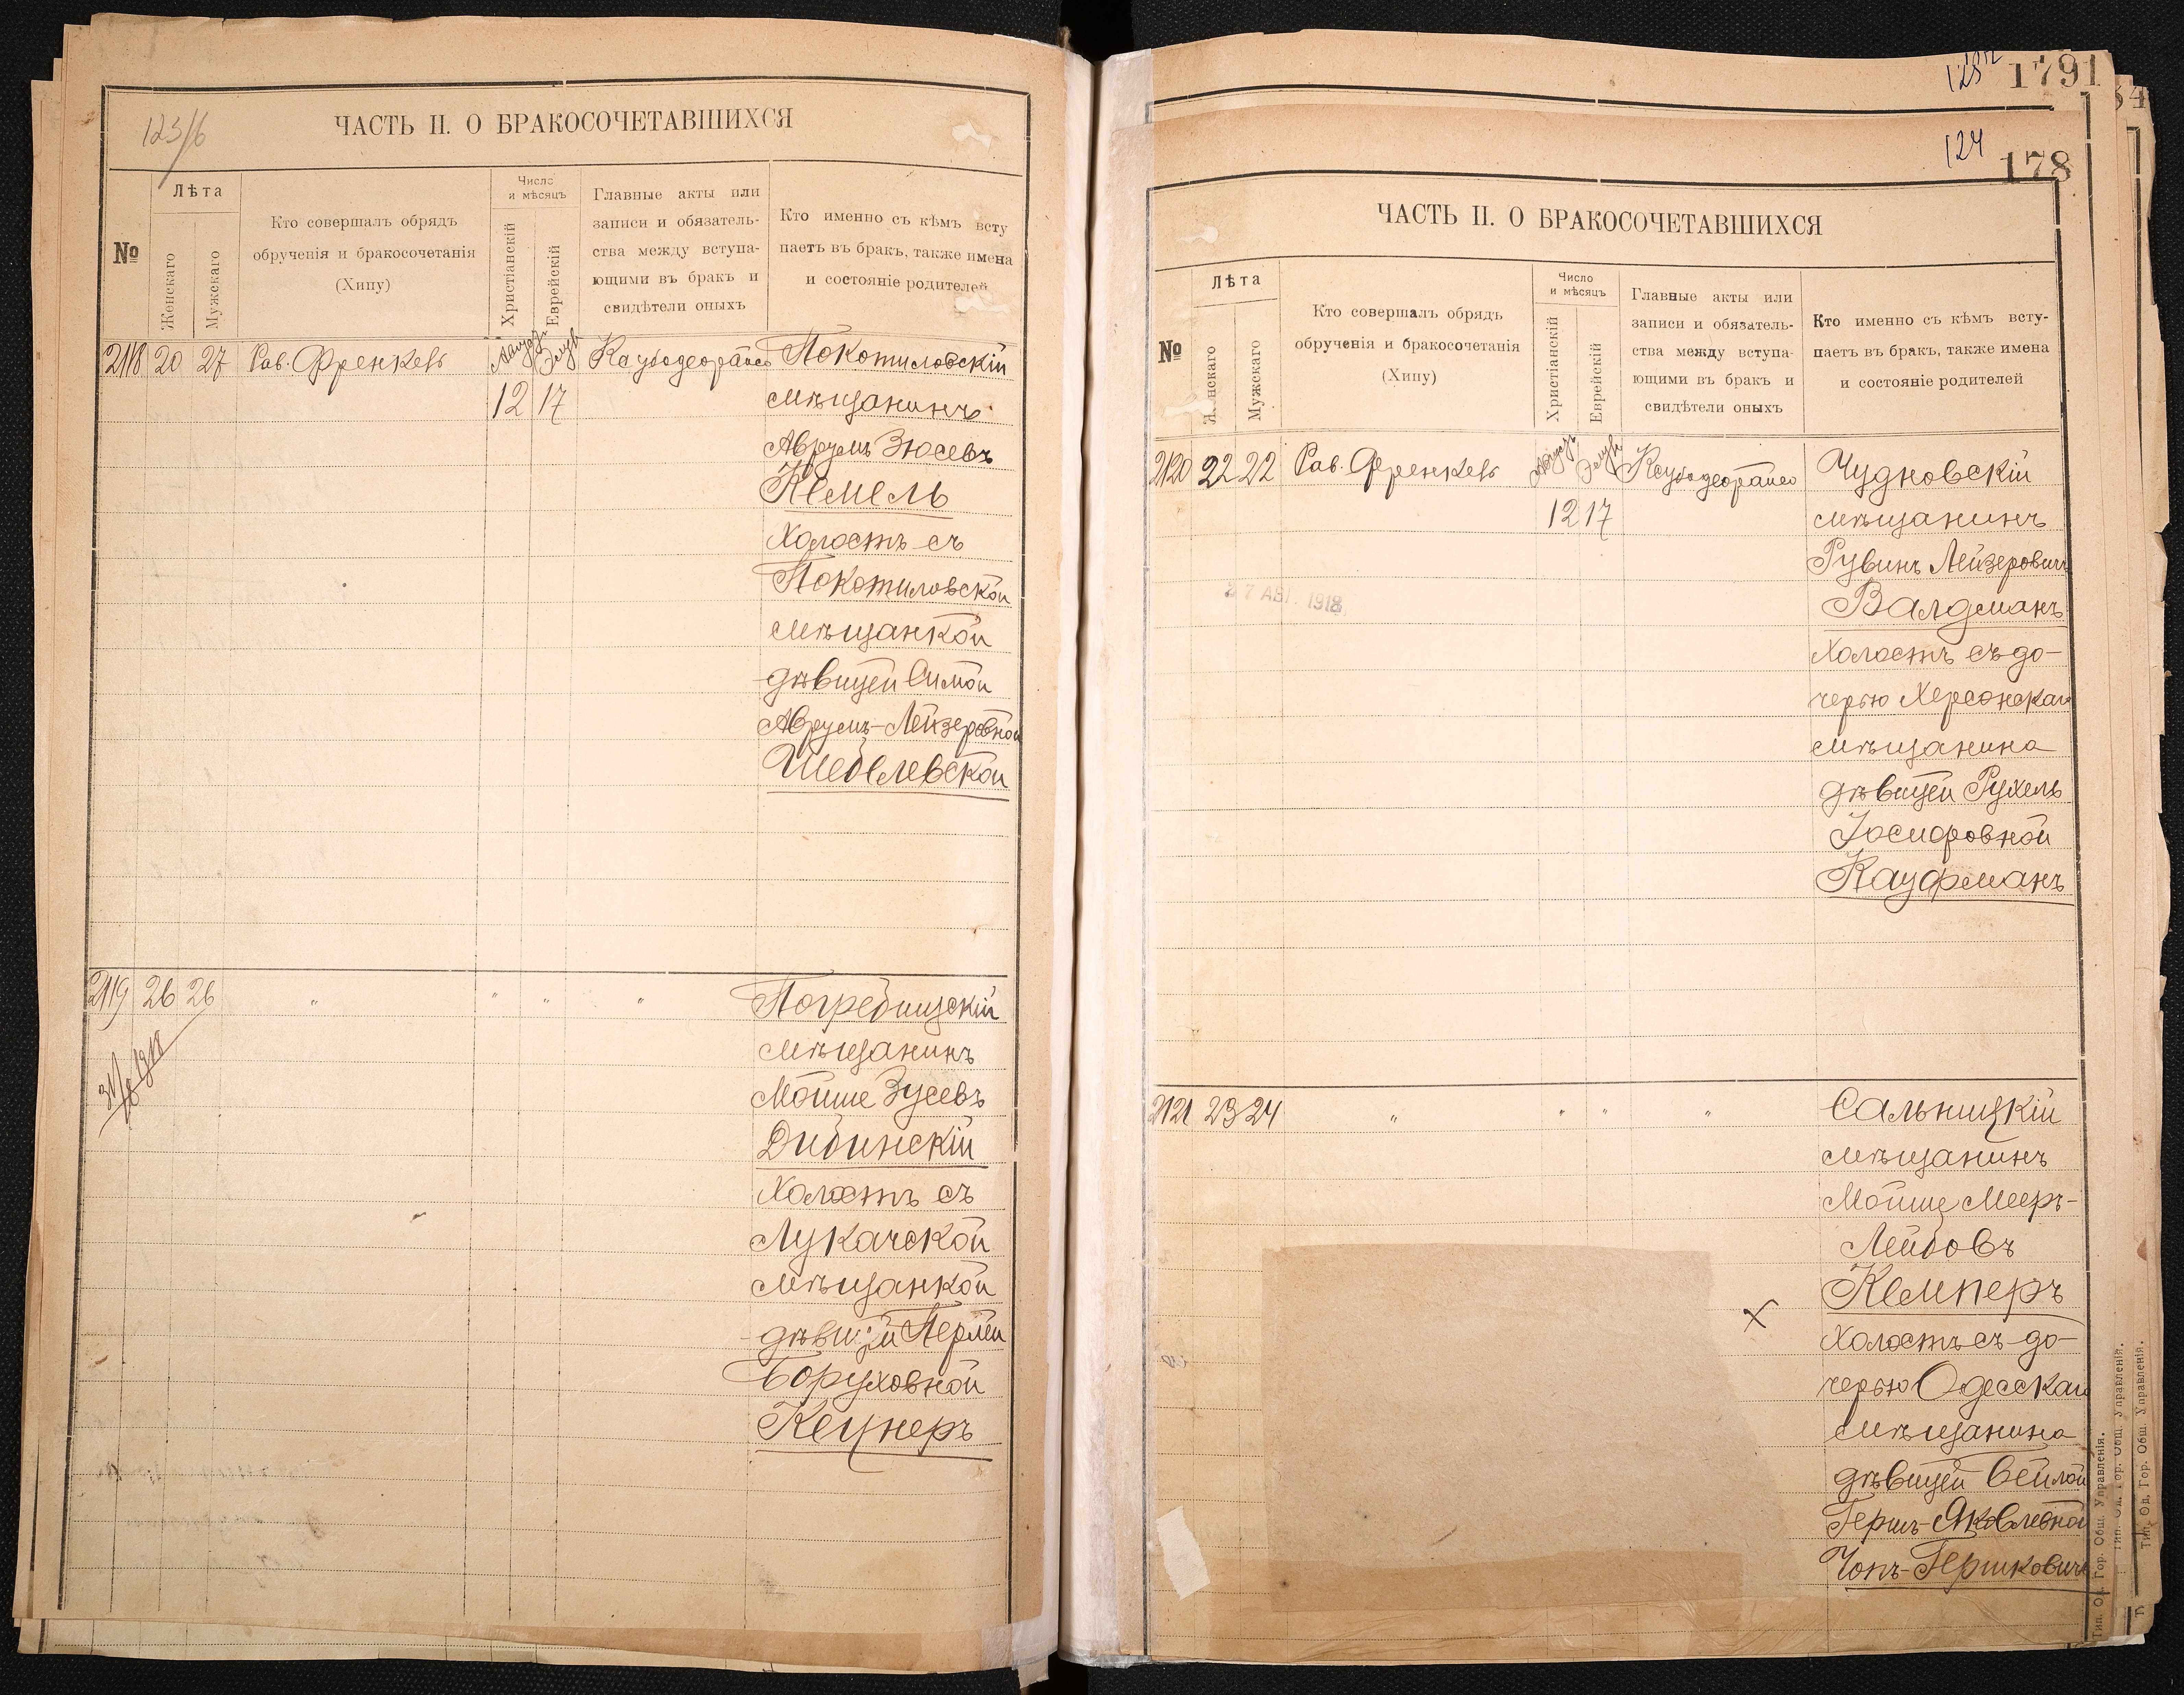 123/6
ЧАСТЬ II. О БРАКОСОЧЕТАВШИХСЯ
№
Лѣта
Женскаго
Мужскаго
Кто совершалъ обрядъ
обрученія и бракосочетанія
(Хипу)
Число
и мѣсяцъ
Христіанскій
Еврейскій
Главные акты или
записи и обязатель-
ства между вступа-
ющими въ бракъ и
свидѣтели оныхъ
Кто именно съ кѣмъ всту
паетъ въ бракъ, также имена
и состояніе родителей
2118 20 27 Рав. Френкель Покотиловскій
12 17 мѣщанинъ
Аврумъ Зюсевъ
Кемель
Холостъ съ
Покотиловской
мѣщанкой
дѣвицей Симой
Аврумъ-Лейзеровной
Шебелевской
2119 26 26 " " " " Погребищскій
мѣщанинъ
Мойше Зусевъ
Дибинскій
Холостъ съ
Лукачской
мѣщанкой
дѣвицей Перлей
Боруховной
Кецнеръ
1791
124
178
ЧАСТЬ II. О БРАКОСОЧЕТАВШИХСЯ
№
Лѣта
Женскаго
Мужскаго
Кто совершалъ обрядъ
обрученія и бракосочетанія
(Хипу)
Число
и мѣсяцъ
Христіанскій
Еврейскій
Главные акты или
записи и обязатель-
ства между вступа-
ющими въ бракъ и
свидѣтели оныхъ
Кто именно съ кѣмъ всту-
паетъ въ бракъ, также имена
и состояніе родителей
2120 22 22 Рав. Френкель Чудновскій
12 17 мѣщанинъ
Рувинъ Лейзеровичъ
Валдманъ
Холостъ съ до-
черью Херсонскаго
мѣщанина
дѣвицей Рухель
Іосифовной
Кауфманъ
27 АВГ. 1918
2121 23 24 " " " " Сальницкій
мѣщанинъ
Мойше Мееръ-
Лейбовъ
Кемперъ
Холостъ съ до-
черью Одесскаго
мѣщанина
дѣвицей Бейлой
Гершъ-Яковлевной
Чопъ-Гершковичъ
Тип. Од. Гор. Общ. Управленія.
Тип. Од. Гор. Общ. Управленія.
Тип. Од. Гор. Общ. Управленія.